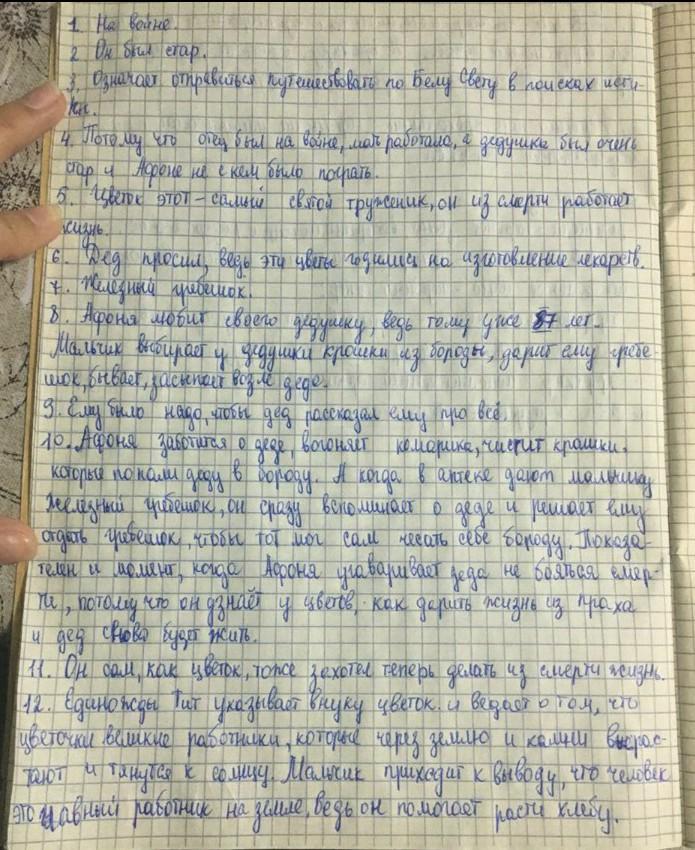 1. На войне.
2 Он был стар.
3. Означает отправиться путешествовать по Белу Свету в поисках исти-
ны.
4. Потому что отец был на войне, мать работала, а дедушка был очень
стар и Афоне не с кем было поиграть.
5. Цветок этот – самый святой труженик, он из смерти работает
жизнь.
6. Дед просил, ведь эти цветы годились на изготовление лекарств.
7. Железный гребешок.
8. Афоня любит своего дедушку, ведь тому уже 87 лет.
Мальчик выбирает у дедушки крошки из бороды, дарит ему гребе-
шок, бывает, засыпает возле деда.
9. Ему было надо, чтобы дед рассказал ему про всё.
10. Афоня заботится о деде, вогоняет комарика, чистит крошки,
которые попали деду в бороду. А когда в аптеке дают мальчику
железный гребешок, он сразу вспоминает о деде и решает ему
отдать гребешок, чтобы тот мог сам чесать себе бороду. Показа-
телен и момент, когда Афоня уговаривает деда не бояться смер-
ти, потому что он узнаёт у цветов, как дарить жизнь из праха
и дед снова будет жить.
11. Он сам, как цветок, тоже захотел теперь делать из смерти жизнь.
12. Единожды Тит указывает внуку цветок и ведает о том, что
цветочки великие работники, которые через землю и камни вырас-
тают и тянутся к солнцу. Мальчик приходит к выводу, что человек
это главный работник на земле, ведь он помогает расти хлебу.